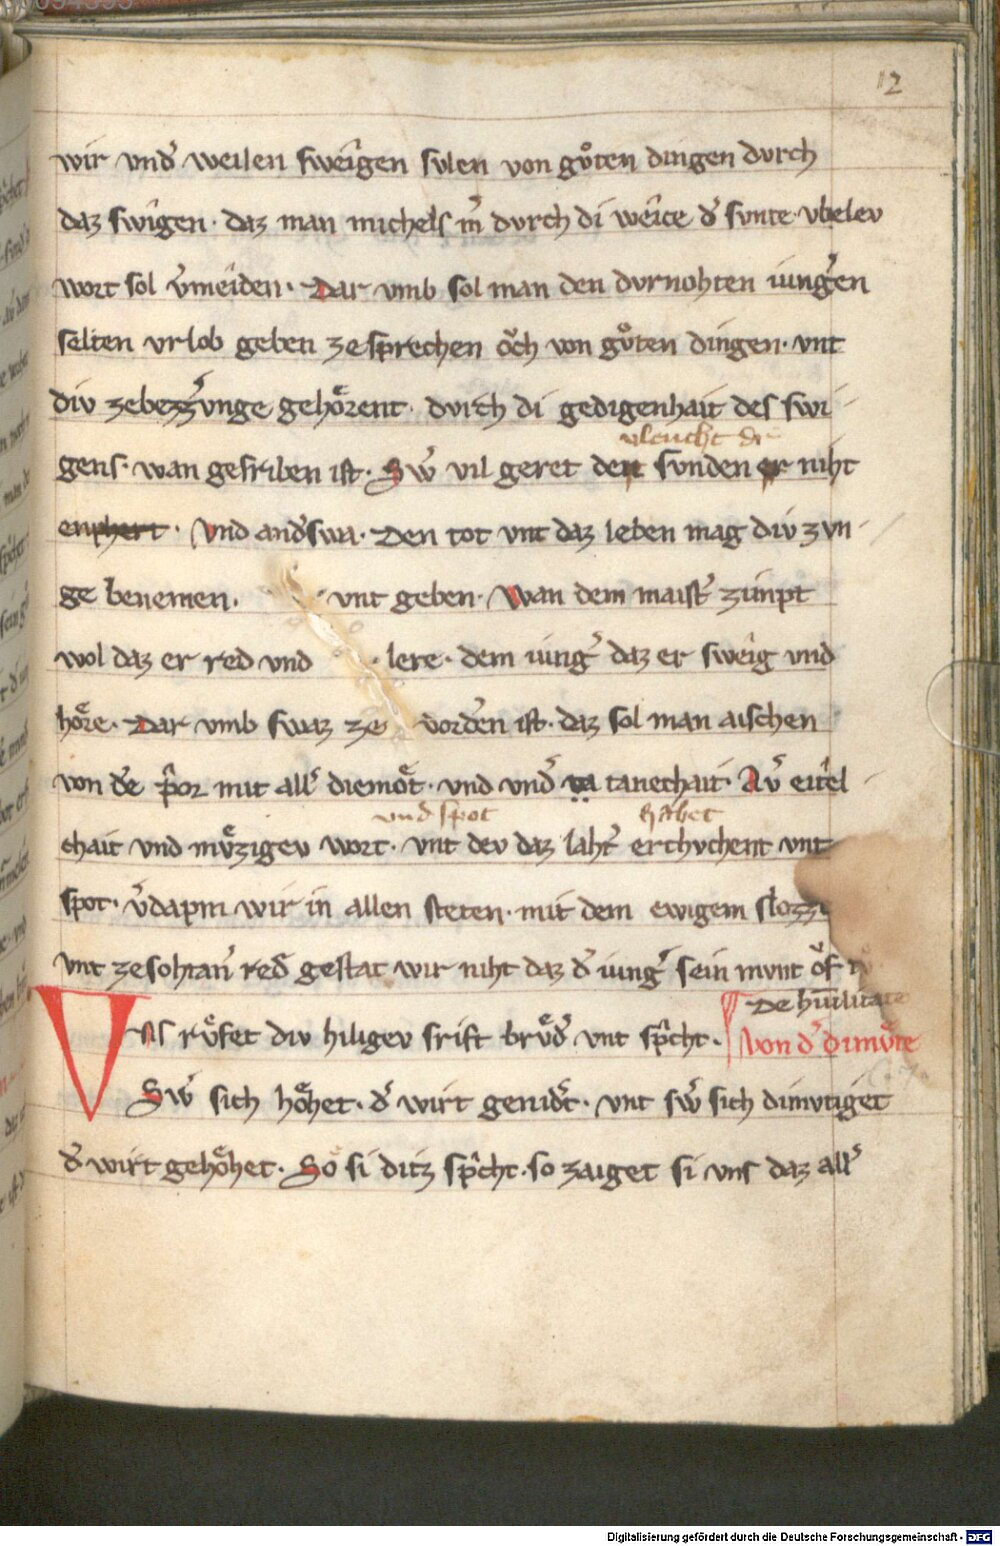 12
wir vnd͛ weilen sweîgen svlen von gůten dingen dvrch
daz swîgen · daz man michels m͛ dvrch di weîce d͛ svnte · vbelev
wort sol v͛meîden · Dar vmb sol man den dvrnohten iung͛en
selten vrlob geben ze sprechen ǒch von gůten dingen · vnt
div zebezz͛vnge gehoͤrent · dvrch di gedigenhait des swi-
vleucht
gens · wan gesriben ist · Sw͛ vil geret den svnden er niht
enphert · Vnd and͛swa · Den tot vnt daz leben mag div zvn-
ge benemen · vnt geben · Wan dem maist͛ zimpt
wol daz er red vnd · lere · dem iung͛ daz er sweîg vnd
hoͤre · Dar vmb swaz ze vord͛en ist · daz sol man aischen
von d͛e p͛or mit all͛ diemoͤt · vnd vnd͛ tanechait · Av͛ eitel-
vnd spot habet
chait vnd mvͤzigev wort · vnt dev daz laht͛ erchvchent vnt
spot · v͛dapm wir in allen steten · mit dem ewigem slozz
vnt zesohtan͛ red gestat wir niht daz d͛ iung͛ sein mvnt ǒf
De humilitate
VNs rvͤfet div hiligev srift brvͤd͛ vnt sp͛cht · Von d͛ dimvͤte
Sw͛ sich hoͤhet · d͛ wirt genid͛t · vnt sw͛ sich dimvtiget
d͛ wirt gehoͤhet · So si ditz sp͛cht · so zaiget si vns daz all͛
Digitalisierung gefördert durch die Deutsche Forschungsgemeinschaft - DFG